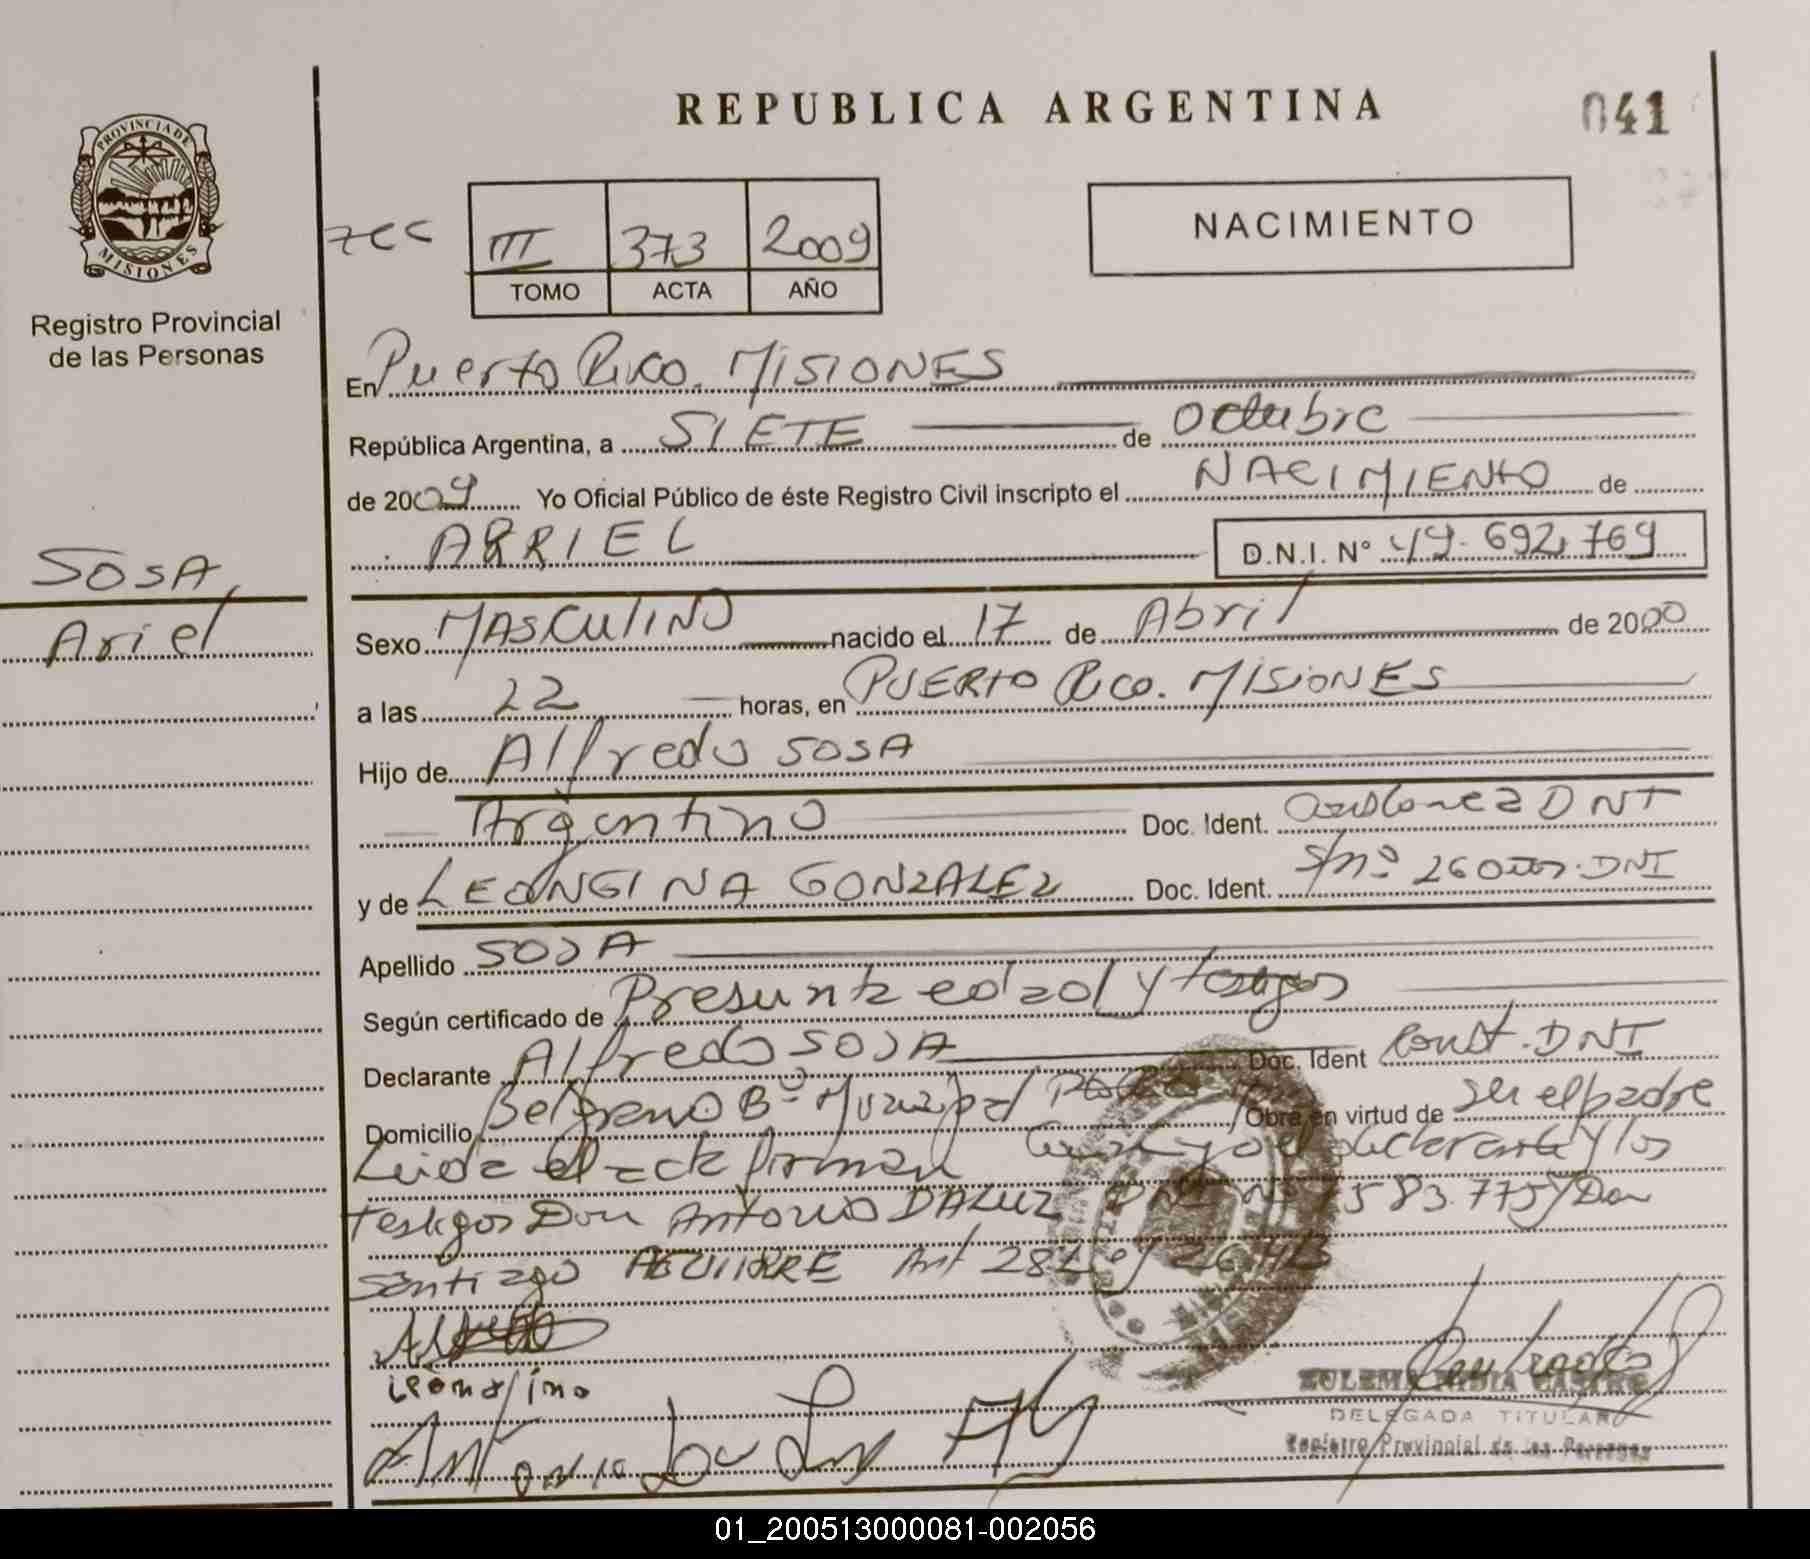 REPUBLICA ARGENTINA
041
PROVINCIA DE
MISIONES
Registro Provincial
de las Personas
III 373 2009
TOMO ACTA AÑO
NACIMIENTO
En Puerto Rico. MISIONES
República Argentina, a SIETE de Octubre
de 2009 Yo Oficial Público de éste Registro Civil inscripto el NACIMIENTO de
ARRIEL D.N.I. Nº 49.692.769
SOSA,
Ariel
Sexo MASCULINO nacido el 17 de Abril de 2000
a las 22 horas, en PUERTO Rico. MISIONES
Hijo de Alfredo SOSA
Argentino Doc. Ident. DNI
y de LEONGINA GONZALEZ Doc. Ident. S/nº DNI
Apellido SOSA
Según certificado de Presunta edad y testigos
Declarante Alfredo SOSA Doc. Ident Const. DNI
Domicilio Belgrano Bº Municipal Obra en virtud de ser el padre
Leida el acta firman yo el declarante y los
testigos Don Antonio DALUZ DNI Nº 583.775 y Don
Santiago AGUIRRE Art 28 Ley 26.413
Leongina
Antonio Da Luz
ZULEMA NIDIA
DELEGADA TITULAR
Registro Provincial de las Personas
01_200513000081-002056